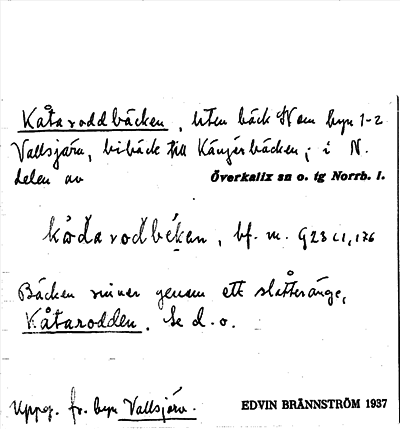 Kåtaroddbäcken, liten bäck N om byn 1-2
Vallsjärv, bibäck till Kängärbäcken; i N.
delen av Överkalix sn o. tg Norrb. l.
kådarodbekan, bf. m. G23 c1,176
Bäcken rinner genom ett slåtteränge,
Kåtarodden. Se d. o.
Uppg. fr. byn Vallsjärv. EDVIN BRÄNNSTRÖM 1937